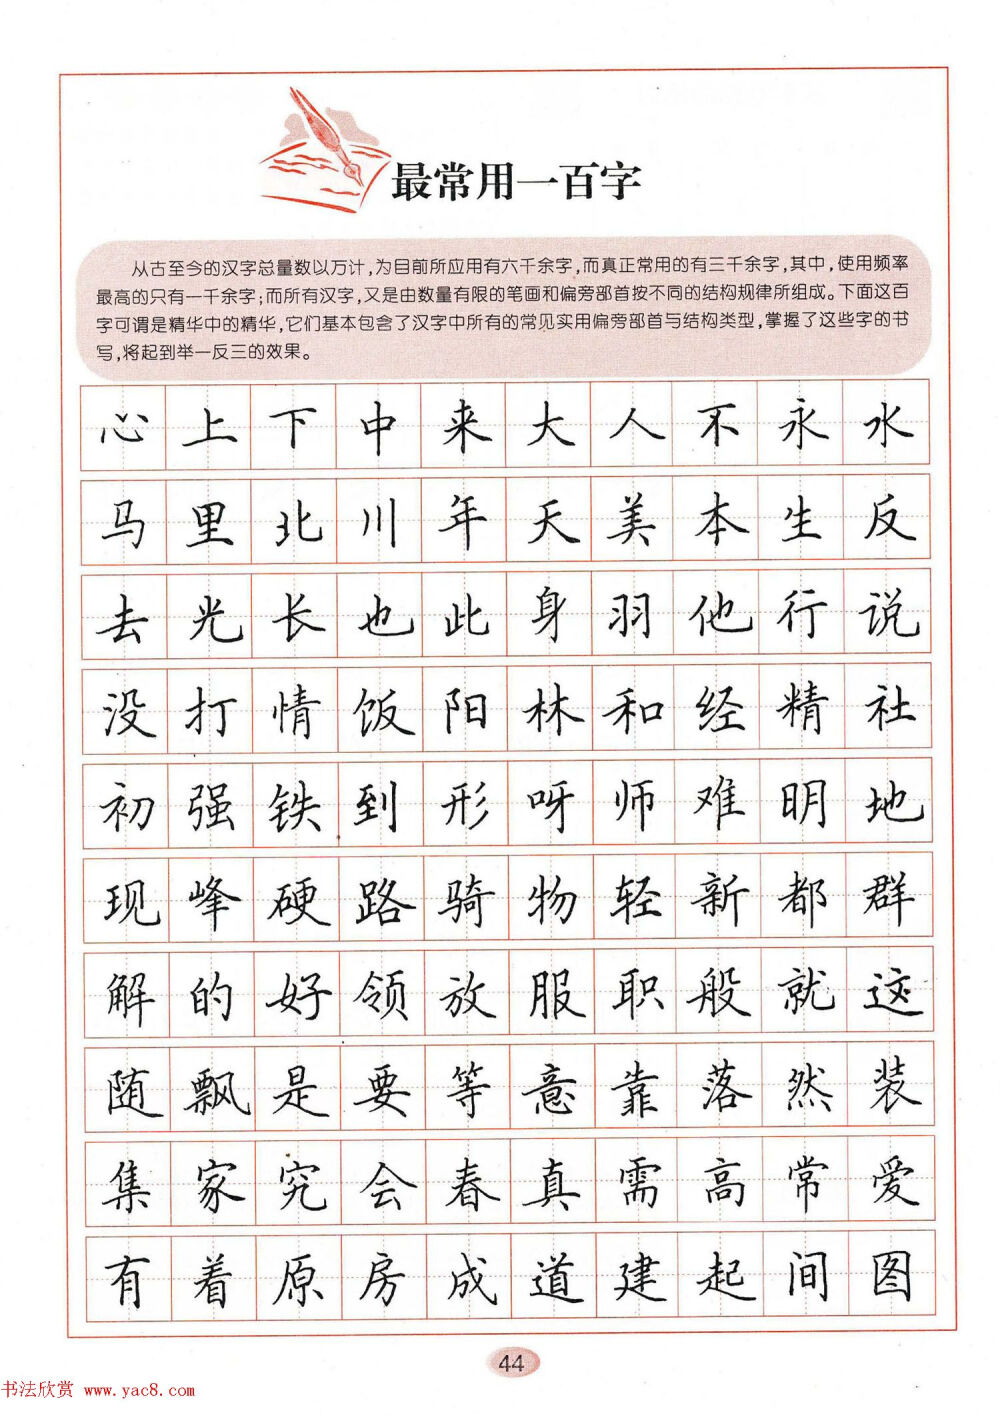 最常用一百字
从古至今的汉字总量数以万计,为目前所应用有六千余字,而真正常用的有三千余字,其中,使用频率
最高的只有一千余字;而所有汉字,又是由数量有限的笔画和偏旁部首按不同的结构规律所组成。下面这百
字可谓是精华中的精华,它们基本包含了汉字中所有的常见实用偏旁部首与结构类型,掌握了这些字的书
写,将起到举一反三的效果。
心上下中来大人不永水
马里北川年天美本生反
去光长也此身羽他行说
没打情饭阳林和经精社
初强铁到形呀师难明地
现峰硬路骑物轻新都群
解的好领放服职般就这
随飘是要等意靠落然装
集家究会春真需高常爱
有着原房成道建起间图
44
书法欣赏 www.yac8.com